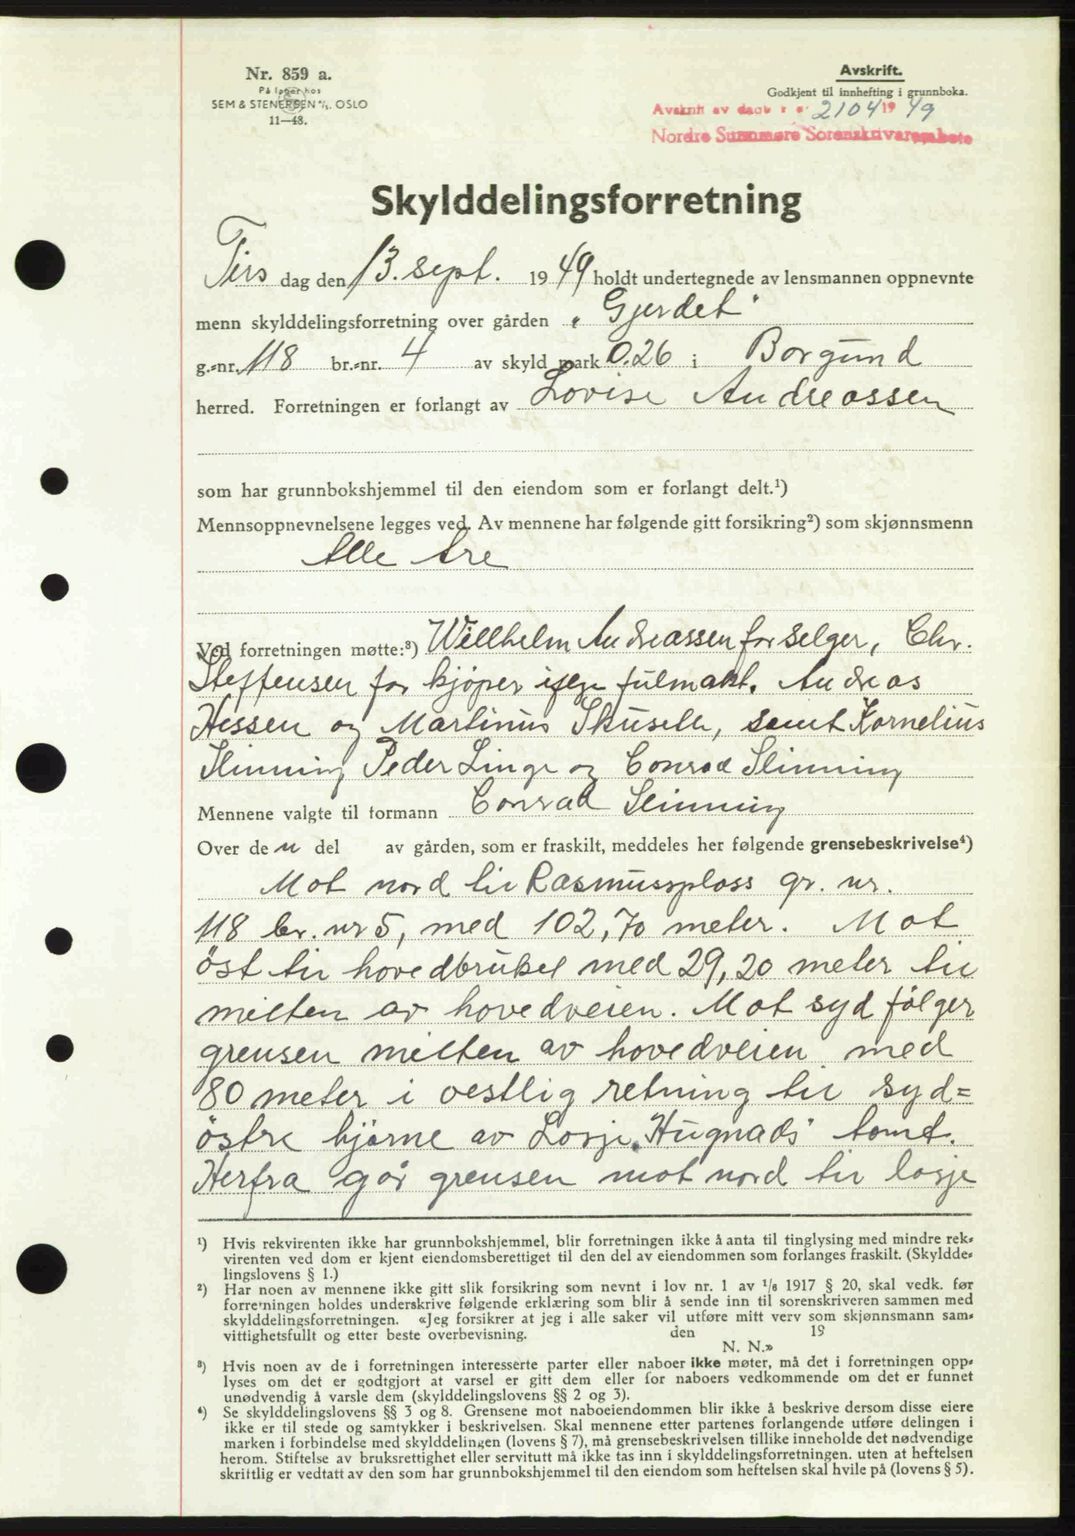 Nr. 859 a.
På lager hos
SEM & STENERSEN A/S, OSLO
11—48.
Avskrift.
Godkjent til innhefting i grunnboka.
Avskrift av dagb nr 2104 1949
Nordre Sunnmøre Sorenskriverembete
Skylddelingsforretning
Tirs dag den 13. sept. 1949 holdt undertegnede av lensmannen oppnevnte
menn skylddelingsforretning over gården „Gjerdet"
g.-nr. 118 br.-nr. 4 av skyld mark 0.26 i Borgund
herred. Forretningen er forlangt av Lovise Andreassen
som har grunnbokshjemmel til den eiendom som er forlangt delt.¹)
Mennsoppnevnelsene legges ved. Av mennene har følgende gitt forsikring²) som skjønnsmenn
Alle tre
Ved forretningen møtte:³) Willhelm Andreassen for selger, Chr.
Steffensen for kjøper ifølge fulmakt. Andreas
Hessen og Martinus Skuselle, samt Kornelius
Slinning Peder Linge og Conrad Slinning
Mennene valgte til formann Conrad Slinning
Over den del av gården, som er fraskilt, meddeles her følgende grensebeskrivelse⁴)
Mot nord til Rasmusplass gr. nr.
118 br. nr 5, med 102,70 meter. Mot
öst til hovedbruket med 29,20 meter til
mitten av hovedveien. Mot syd fölger
grensen mitten av hovedveien med
80 meter i vestlig retning til syd=
östre hjörne av Losje „Hugnads" tomt.
Herfra går grensen mot nord til losje
¹) Hvis rekvirenten ikke har grunnbokshjemmel, blir forretningen ikke å anta til tinglysing med mindre rek-
virenten ved dom er kjent eiendomsberettiget til den del av eiendommen som forlanges fraskilt. (Skyldde-
lingslovens § 1.)
²) Har noen av mennene ikke gitt slik forsikring som nevnt i lov nr. 1 av 1/6 1917 § 20, skal vedk. før
forretningen holdes underskrive følgende erklæring som blir å sende inn til sorenskriveren sammen med
skylddelingsforretningen. «Jeg forsikrer at jeg i alle saker vil utføre mitt verv som skjønnsmann sam-
vittighetsfullt og etter beste overbevisning. den 19
N. N.»
³) Hvis noen av de i forretningen interesserte parter eller naboer ikke møter, må det i forretningen opp-
lyses om det er godtgjort at varsel er gitt dem eller for naboers vedkommende om det er funnet
unødvendig å varsle dem (skylddelingslovens §§ 2 og 3).
⁴) Se skylddelingslovens §§ 3 og 8. Grensene mot naboeiendommen blir ikke å beskrive dersom disse eiere
ikke er til stede og samtykker i beskrivelsen. Skal mennene etter partenes forlangende utføre delingen i
marken i forbindelse med skylddelingen (lovens § 7), må grensebeskrivelsen tillike inneholde det nødvendige
herom. Stiftelse av bruksrettighet eller servitutt må ikke tas inn i skylddelingsforretningen. uten at heftelsen
skriftlig er vedtatt av den som har grunnbokshjemmel til den eiendom som heftelsen skal hvile på (lovens § 5).